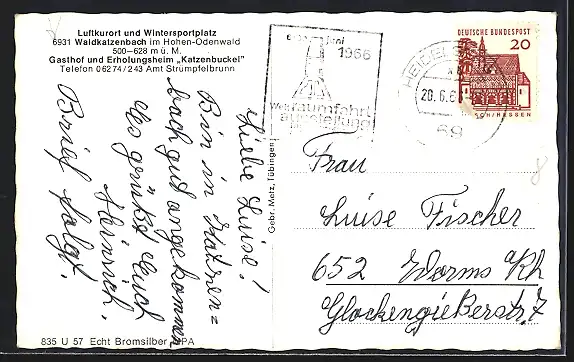 Luftkurort und Wintersportplatz
6931 Waldkatzenbach im Hohen-Odenwald
500–628 m ü. M.
Gasthof und Erholungsheim „Katzenbuckel"
Telefon 06274/243 Amt Strümpfelbrunn
Liebe Luise!
Bin in Katzen=
bach gut angekommen
es grüßt Euch
Heinrich.
Brief folgt.
835 U 57 Echt Bromsilber
Gebr. Metz, Tübingen
Juni
1966
Weltraumfahrt
ausstellung
20.6.6
69
DEUTSCHE BUNDESPOST
20
LORSCH/HESSEN
Frau
Luise Fischer
652 Worms Rh
Glockengießerstr. 7